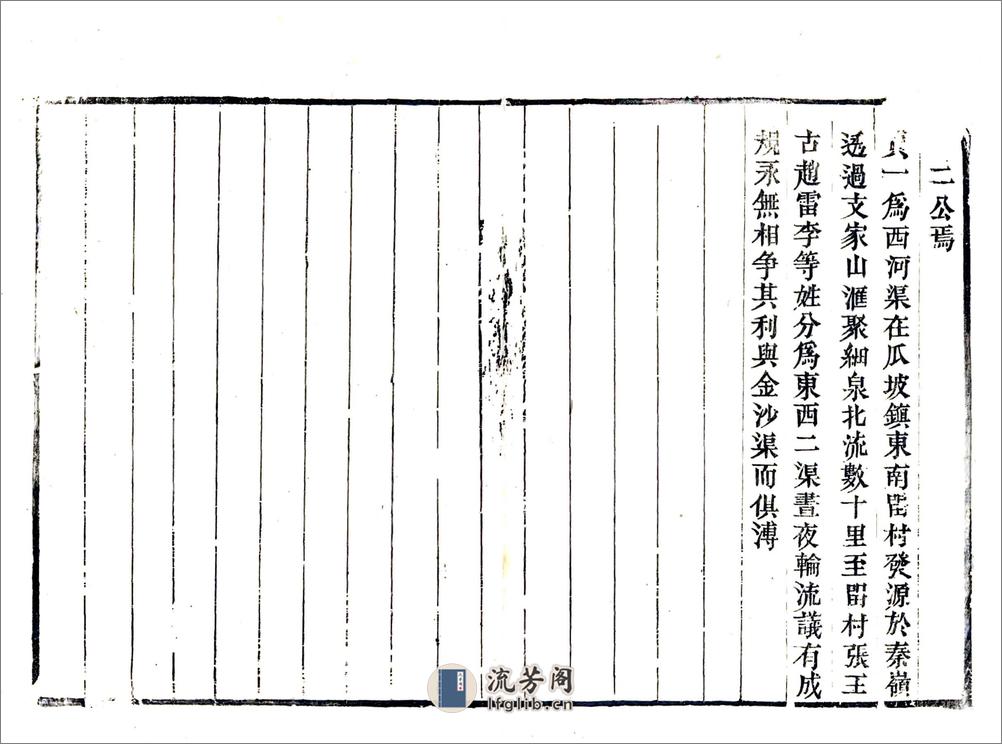 二公焉
其一爲西河渠在瓜坡鎮東南㽞村發源於秦嶺
透過支家山滙聚細泉北流數十里至㽞村張王
古趙雷李等姓分爲東西二渠晝夜輪流議有成
規永無相争其利與金沙渠而俱溥
流芳阁
lfglib.cn